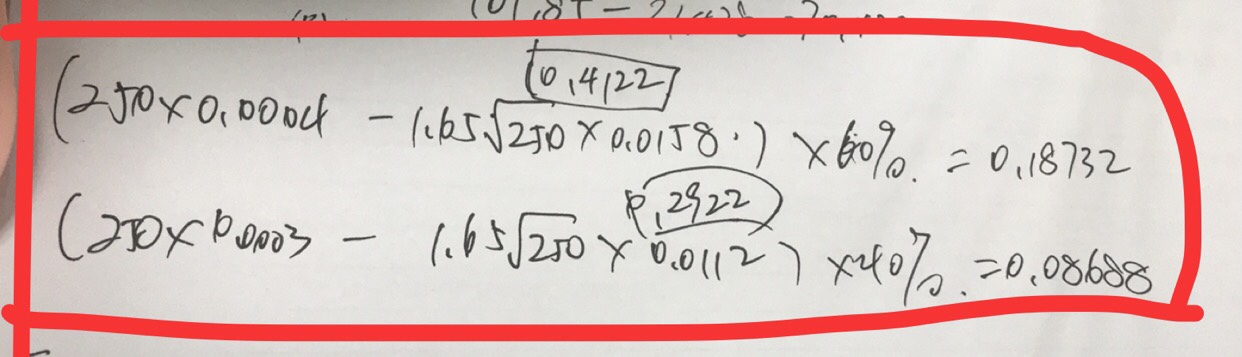 0.4122
(250×0.0004 - 1.65√250 × 0.0158.) ×60%. = 0.18732
0.2922
(250×0.0003 - 1.65√250 × 0.0112) ×40%. =0.08688